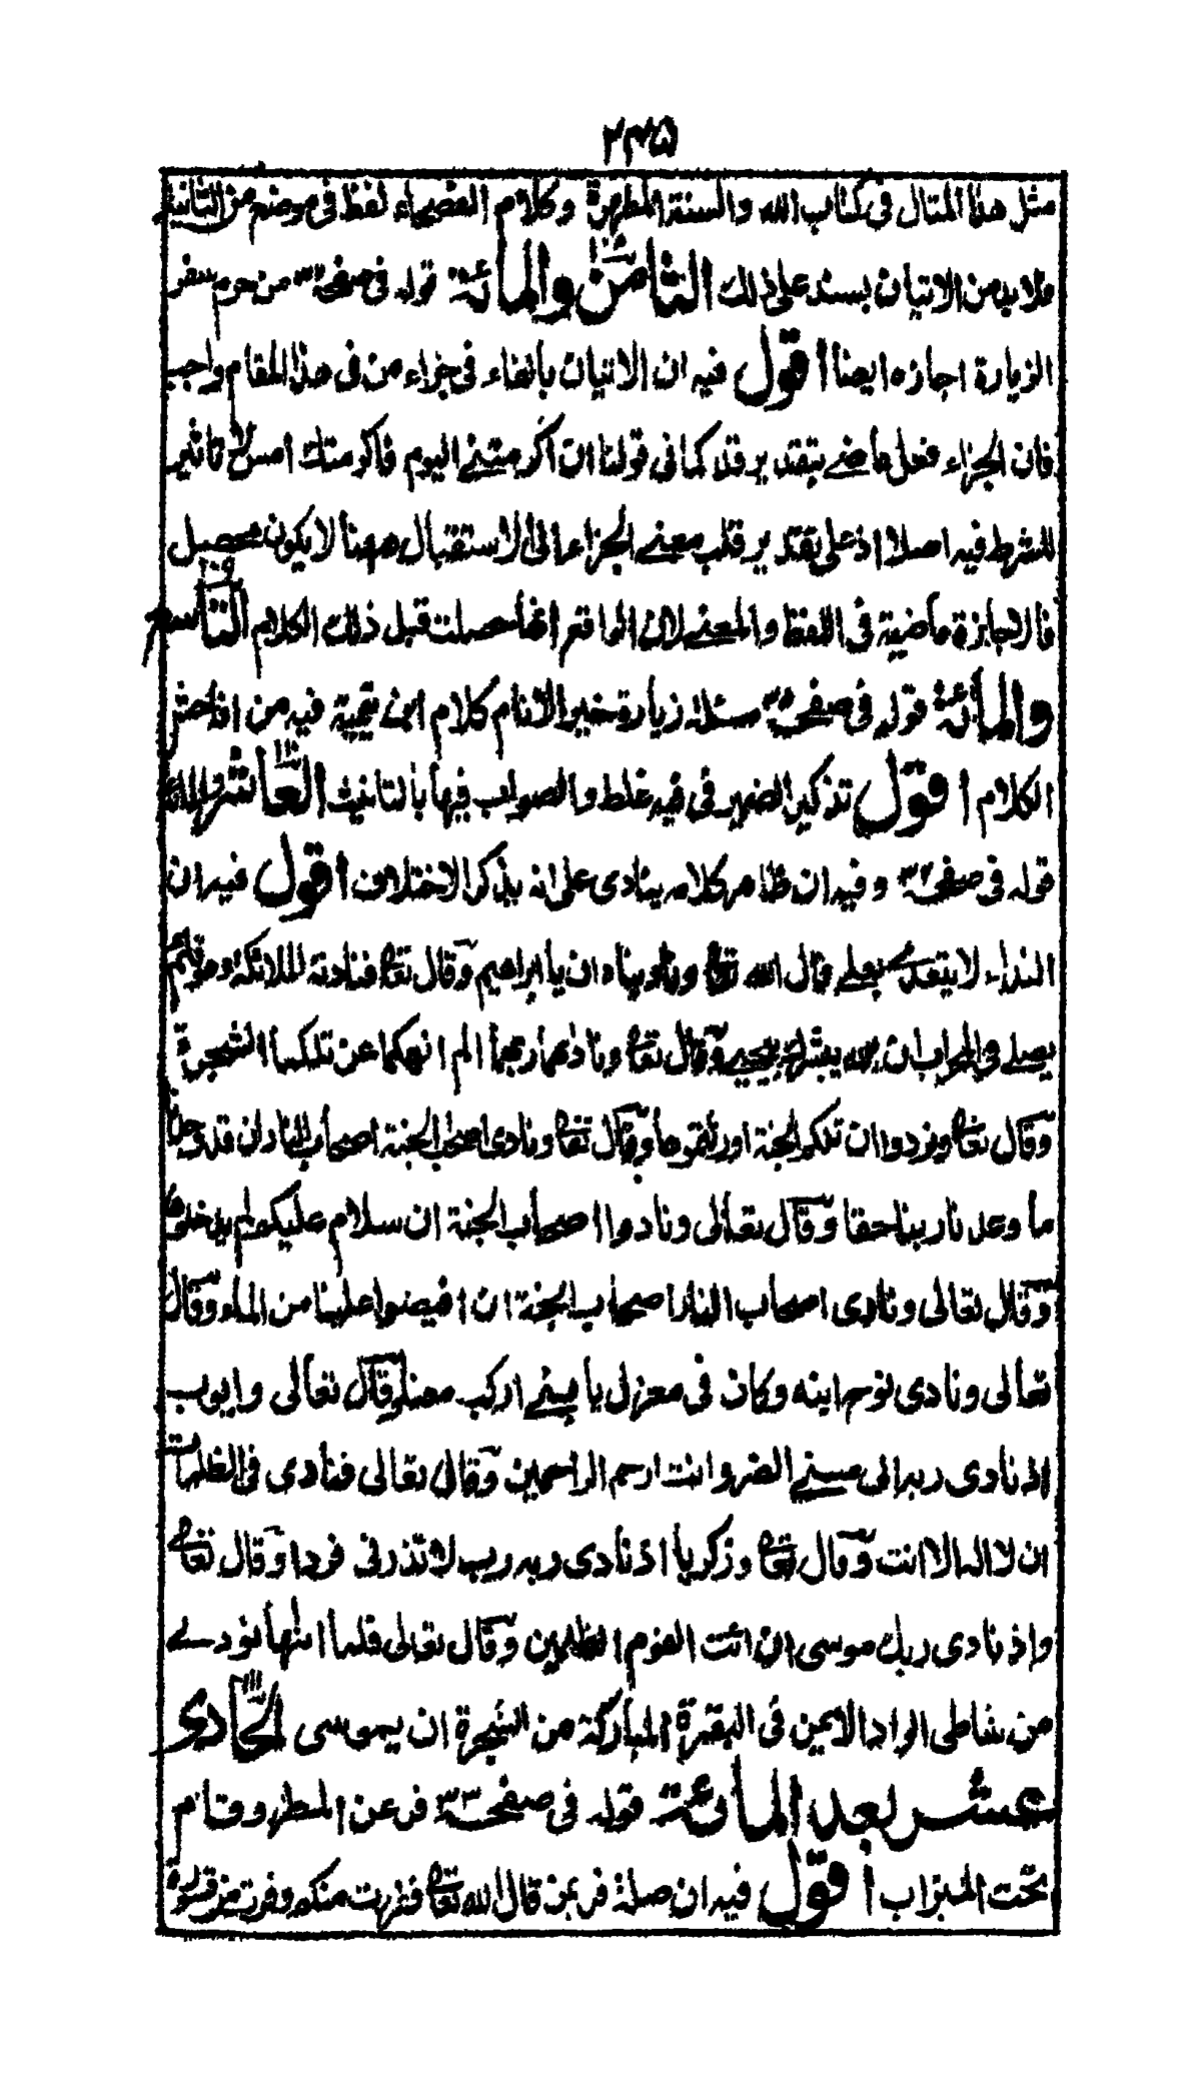 ٢٣٥
مثل هذا المتال فى كتاب الله والسنة المطهرة وكلام الفصحاء لفظ فى موضع من الثانية
فلا بد من الاتيان بسند على ذلك الثامن والمائة قوله فى صفحة من حرم سفر
الزيارة اجازه ايضا اقول فيه ان الاتيان بالفاء فى جزاء من فى هذا المقام واجب
فان الجزاء فعل ماضے بتقدير قد كما فى قولنا ان اكرمتنے اليوم فاكرمتك امس لا تاثير
للشرط فيه اصلا اذ على تقدير قلب معنے الجزاء الى الاستقبال ههنا لا يكون تحصيل
فالاجازة ماضية فى اللفظ والمعنے لان الواقع انها حصلت قبل ذلك الكلام التاسع
والمائة قوله فى صفحة مسئلة زيارة خير الانام كلام ابن تيمية فيه من افاحش
الكلام اقول تذكير الضمير فى فيه غلط والصواب فيها بالتانيث العاشر والمائة
قوله فى صفحة ٣٢ وفيه ان ظاهر كلامه ينادى على انه يذكر الاختلاف اقول فيه ان
النداء لا يتعدے بعلى قال الله تعا وناديناه ان يا ابراهيم وقال تعا فنادته الملائكة وهو قائم
يصلے فى المحراب ان الله يبشرك بيحيى وقال تعا وناداهما ربهما الم انهكما عن تلكما الشجرة
وقال تعا ونودوا ان تلكم الجنة اورثتموها وقال تعا ونادى اصحب الجنة اصحاب النار ان قد وجدنا
ما وعدنا ربنا حقا وقال تعالى ونادوا اصحاب الجنة ان سلام عليكم لم يدخلوها
وقال تعالى ونادى اصحاب النار اصحاب الجنة ان افيضوا علينا من الماء وقال
تعالى ونادى نوح ابنه وكان فى معزل يا بنے اركب معنا وقال تعالى وايوب
اذ نادى ربه انى مسنے الضر وانت ارحم الراحمين وقال تعالى فنادى فى الظلمات
ان لا اله الا انت وقال تعا وزكريا اذ نادى ربه رب لا تذرنى فردا وقال تعا
واذ نادى ربك موسى ان ائت القوم الظلمين وقال تعالى فلما اتٰها نودے
من شاطى الواد الايمن فى البقعة المباركة من الشجرة ان يموسى الحادى
عشر بعد المائة قوله فى صفحة ٣٣ فر عن المطر وقام
تحت الميزاب اقول فيه ان صلة فر بمن قال الله تعا ففررت منكم وفرت من قسورة